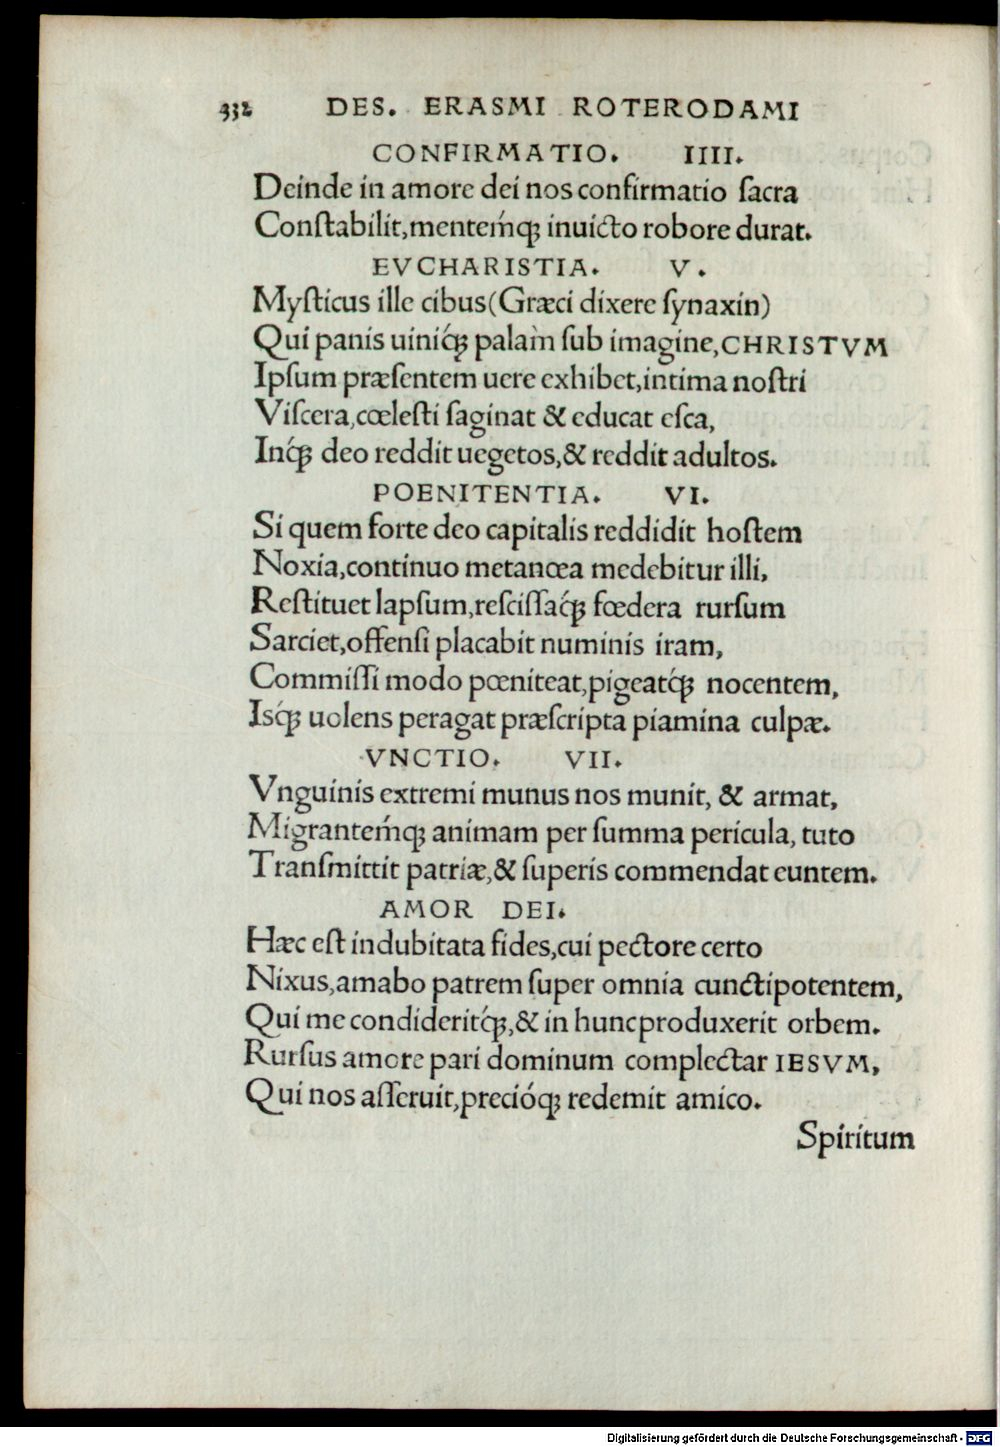 332 DES. ERASMI ROTERODAMI
CONFIRMATIO. IIII.
Deinde in amore dei nos confirmatio ſacra
Conſtabilit,mentemq́ꝫ inuicto robore durat.
EVCHARISTIA. V.
Myſticus ille cibus(Græci dixere ſynaxin)
Qui panis uiniq́ꝫ palàm ſub imagine,CHRISTVM
Ipſum præſentem uere exhibet,intima noſtri
Viſcera,cœleſti ſaginat & educat eſca,
Inq́ꝫ deo reddit uegetos,& reddit adultos.
POENITENTIA. VI.
Si quem forte deo capitalis reddidit hoſtem
Noxia,continuo metanœa medebitur illi,
Reſtituet lapſum,reſciſſaq́ꝫ fœdera rurſum
Sarciet,offenſi placabit numinis iram,
Commiſſi modo pœniteat,pigeatq́ꝫ nocentem,
Isq́ꝫ uolens peragat præſcripta piamina culpæ.
VNCTIO. VII.
Vnguinis extremi munus nos munit, & armat,
Migrantemq́ꝫ animam per ſumma pericula, tuto
Tranſmittit patriæ,& ſuperis commendat euntem.
AMOR DEI.
Hæc eſt indubitata fides,cui pectore certo
Nixus,amabo patrem ſuper omnia cunctipotentem,
Qui me condideritq́ꝫ,& in hunc produxerit orbem.
Rurſus amore pari dominum complectar IESVM,
Qui nos aſſeruit,precióqꝫ redemit amico.
Spiritum
Digitalisierung gefördert durch die Deutsche Forschungsgemeinschaft - DFG